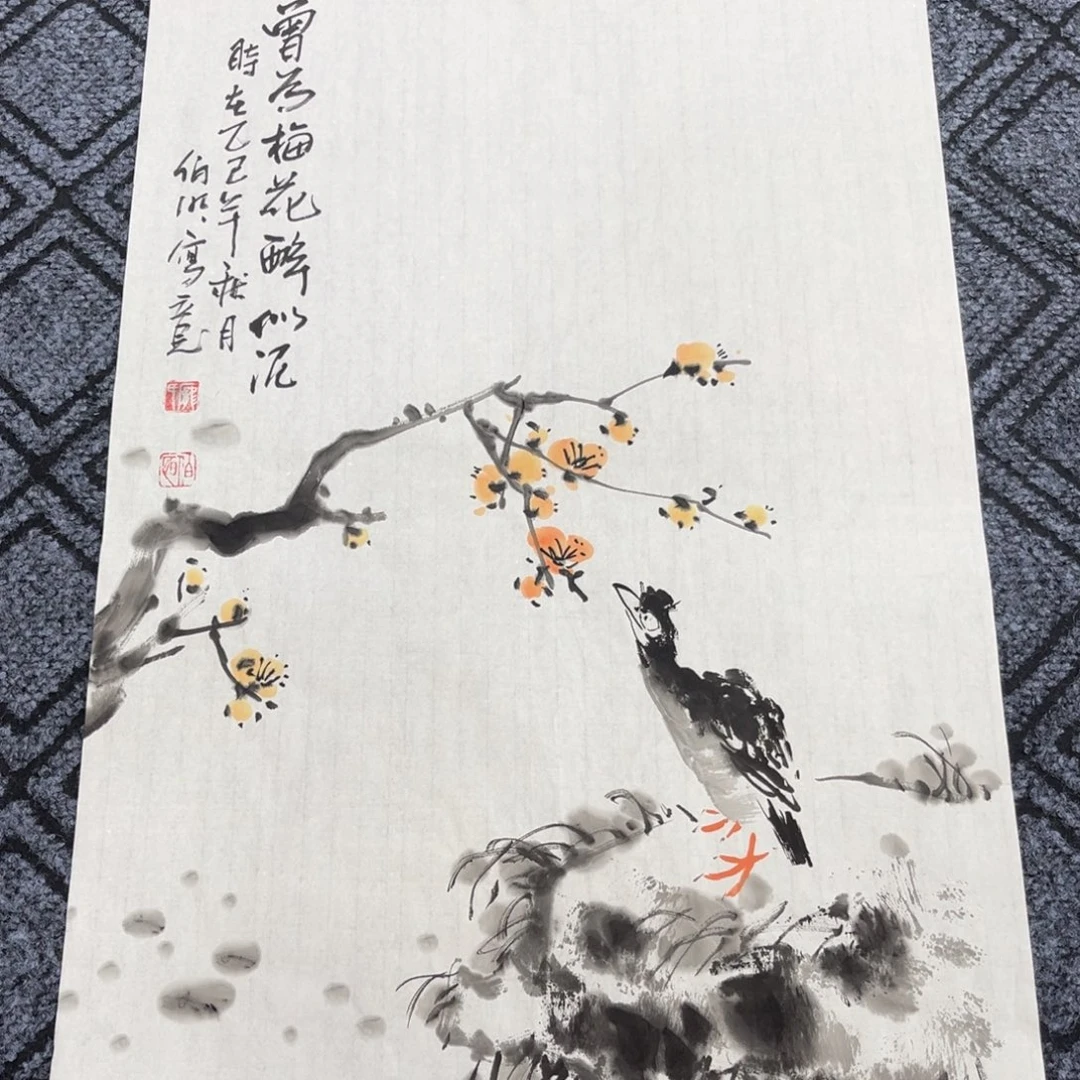 曾为梅花醉似泥
時在乙巳年秋月
伯寫意